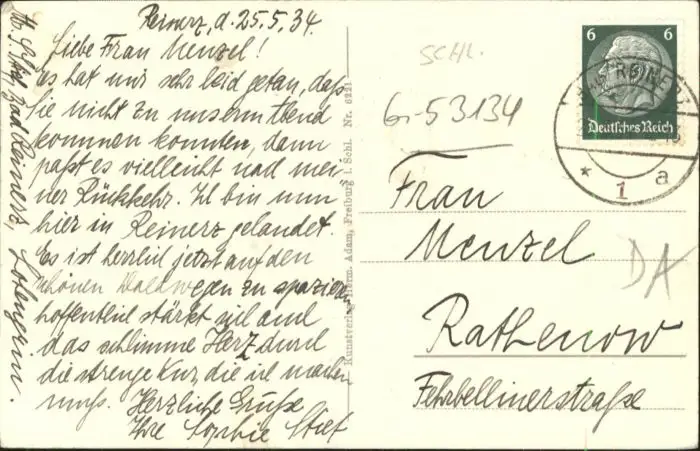 Reinerz, d. 25.5.34.
Liebe Frau Menzel!
es hat mir sehr leid getan, daß
Sie nicht zu unserm Abend
kommen konnten, dann
paßt es vielleicht nach mei-
ner Rückkehr. Ich bin nun
hier in Reinerz gelandet.
Es ist herrlich jetzt auf den
schönen Waldwegen zu spazieren
hoffentlich stärkt sich auch
das schlimme Herz durch
die strenge Kur, die ich machen
muß. Herzliche Grüße
Ihre Sophie Stief
Bad Reinerz, Lohengrin.
Kunstverlag Herm. Adam, Freiburg i. Schl. Nr. 6221
SCHL.
G-53134
6 6
Deutsches Reich
REINERZ
* 1 a
Frau
Menzel
Rathenow
Fehrbellinerstraße
DA